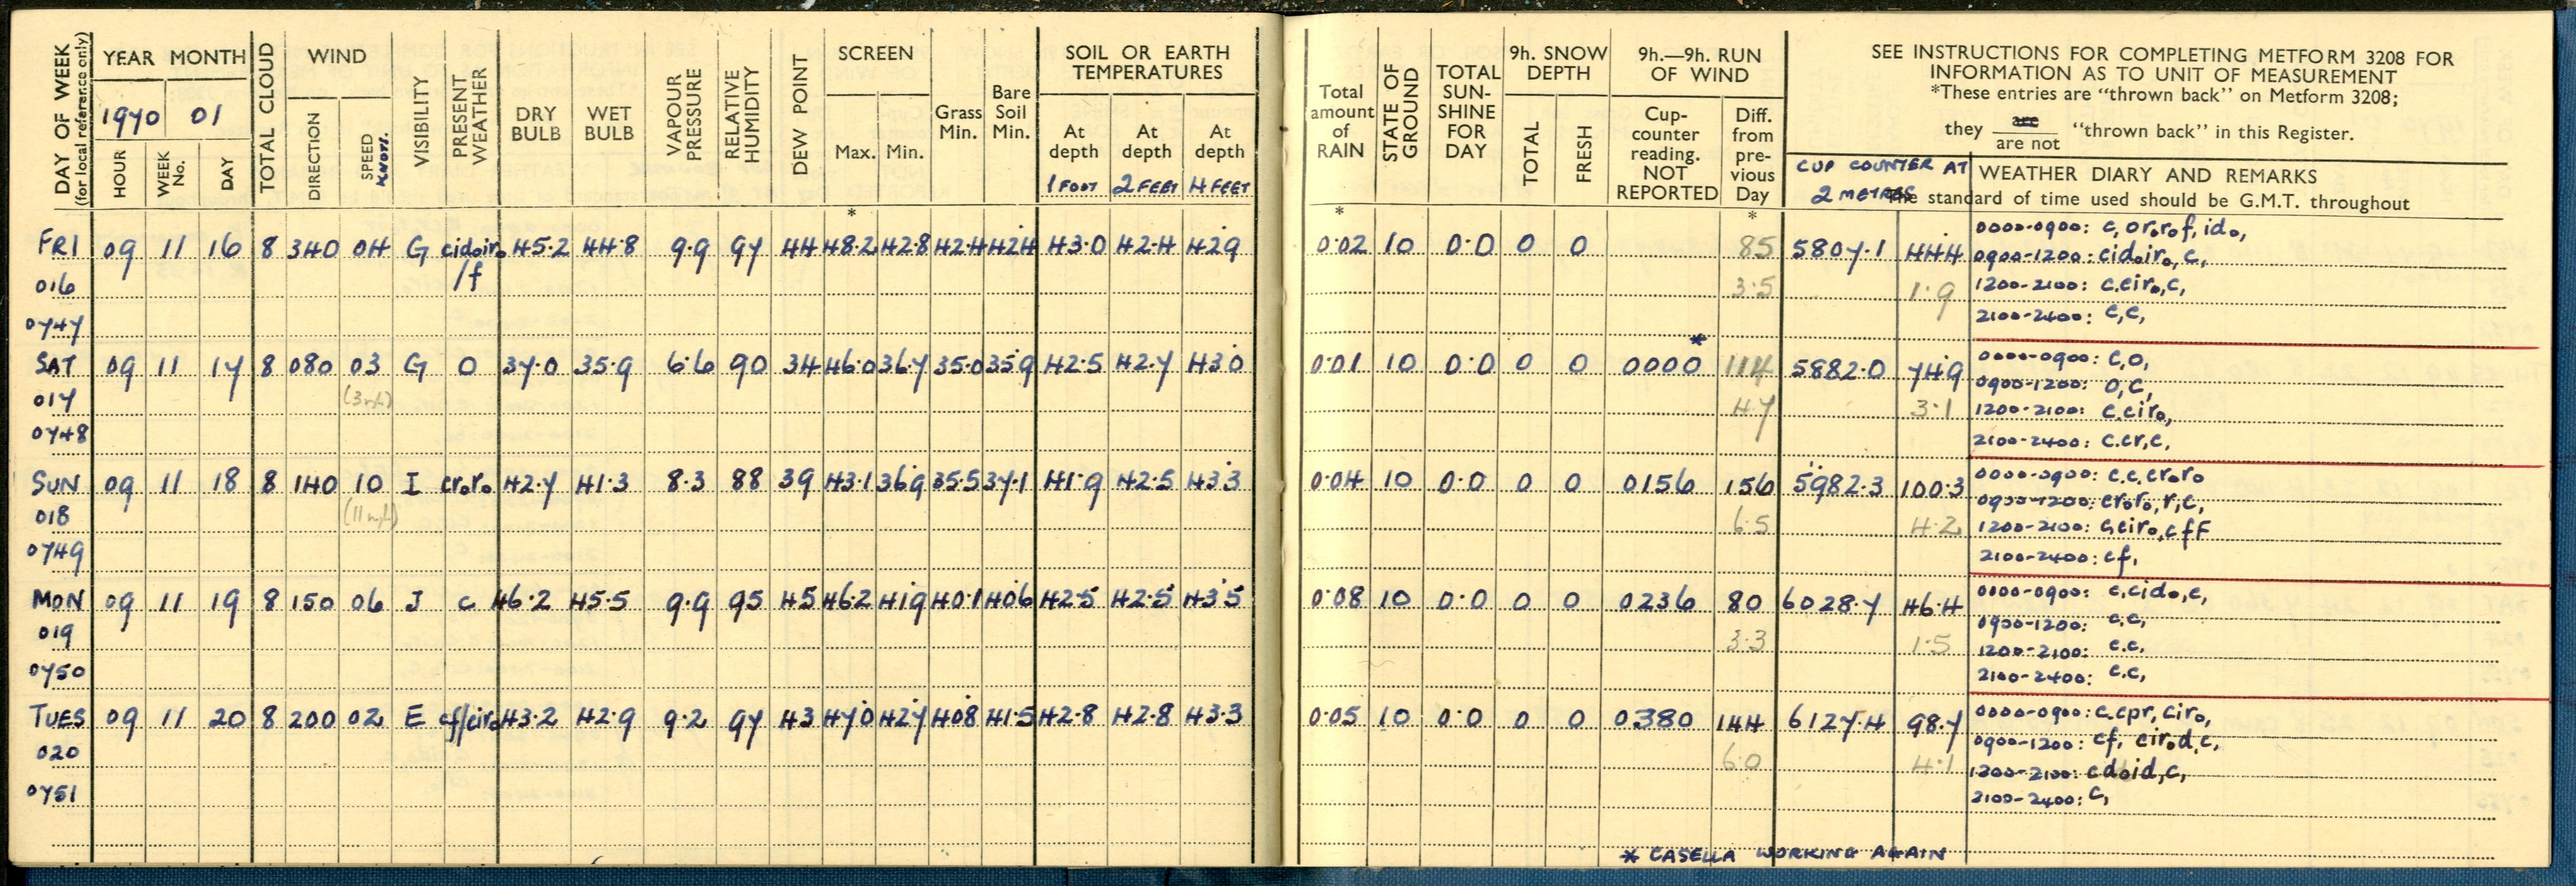 DAY OF WEEK (for local reference only)
YEAR MONTH
1970 01
HOUR WEEK No. DAY
TOTAL CLOUD
WIND
DIRECTION SPEED KNOTS.
VISIBILITY
PRESENT WEATHER
DRY BULB
WET BULB
VAPOUR PRESSURE
RELATIVE HUMIDITY
DEW POINT
SCREEN
Max. Min.
Grass Min.
Bare Soil Min.
SOIL OR EARTH TEMPERATURES
At depth 1 FOOT At depth 2 FEET At depth 4 FEET
Total amount of RAIN
STATE OF GROUND
TOTAL SUN-SHINE FOR DAY
9h. SNOW DEPTH
TOTAL FRESH
9h.—9h. RUN OF WIND
Cup-counter reading. NOT REPORTED
Diff. from pre-vious Day
SEE INSTRUCTIONS FOR COMPLETING METFORM 3208 FOR
INFORMATION AS TO UNIT OF MEASUREMENT
*These entries are "thrown back" on Metform 3208;
they are / are not "thrown back" in this Register.
CUP COUNTER AT 2 METRES
WEATHER DIARY AND REMARKS
The standard of time used should be G.M.T. throughout
* * *
FRI 09 11 16 8 340 04 G cidoiro/f 45.2 44.8 9.9 97 44 48.2 42.8 42.4 42.4 43.0 42.4 42.9 0.02 10 0.0 0 0 85 5807.1 44.4
016 3.5 1.9
0747
0000-0900: c, ororof, ido,
0900-1200: cidoiro, c,
1200-2100: c.ciro, c,
2100-2400: c, c,
SAT 09 11 17 8 080 03 G O 37.0 35.9 6.6 90 34 46.0 36.7 35.0 35.9 42.5 42.7 43.0 0.01 10 0.0 0 0 0000 * 114 5882.0 74.9
017 4.7 3.1
0748
0000-0900: c, o,
0900-1200: o, c,
1200-2100: c.ciro,
2100-2400: c.cr, c,
SUN 09 11 18 8 140 10 I croro 42.7 41.3 8.3 88 39 43.1 36.9 35.5 37.1 41.9 42.5 43.3 0.04 10 0.0 0 0 0156 156 5982.3 100.3
018 6.5 4.2
0749
0000-0900: c.c.croro
0900-1200: croro, r, c,
1200-2100: c,ciro, cfF
2100-2400: cf,
MON 09 11 19 8 150 06 I c 46.2 45.5 9.9 95 45 46.2 41.9 40.1 40.6 42.5 42.5 43.5 0.08 10 0.0 0 0 0236 80 6028.7 46.4
019 3.3 1.5
0750
0000-0900: c,cido, c,
0900-1200: c.c,
1200-2100: c.c,
2100-2400: c.c,
TUES 09 11 20 8 200 02 E cf/ciro 43.2 42.9 9.2 97 43 47.0 42.7 40.8 41.5 42.8 42.8 43.3 0.05 10 0.0 0 0 0380 144 6127.4 98.7
020 6.0 4.1
0751
0000-0900: c.cpr, ciro,
0900-1200: cf, ciro d, c,
1200-2100: cdoid, c,
2100-2400: c,
* CASELLA WORKING AGAIN